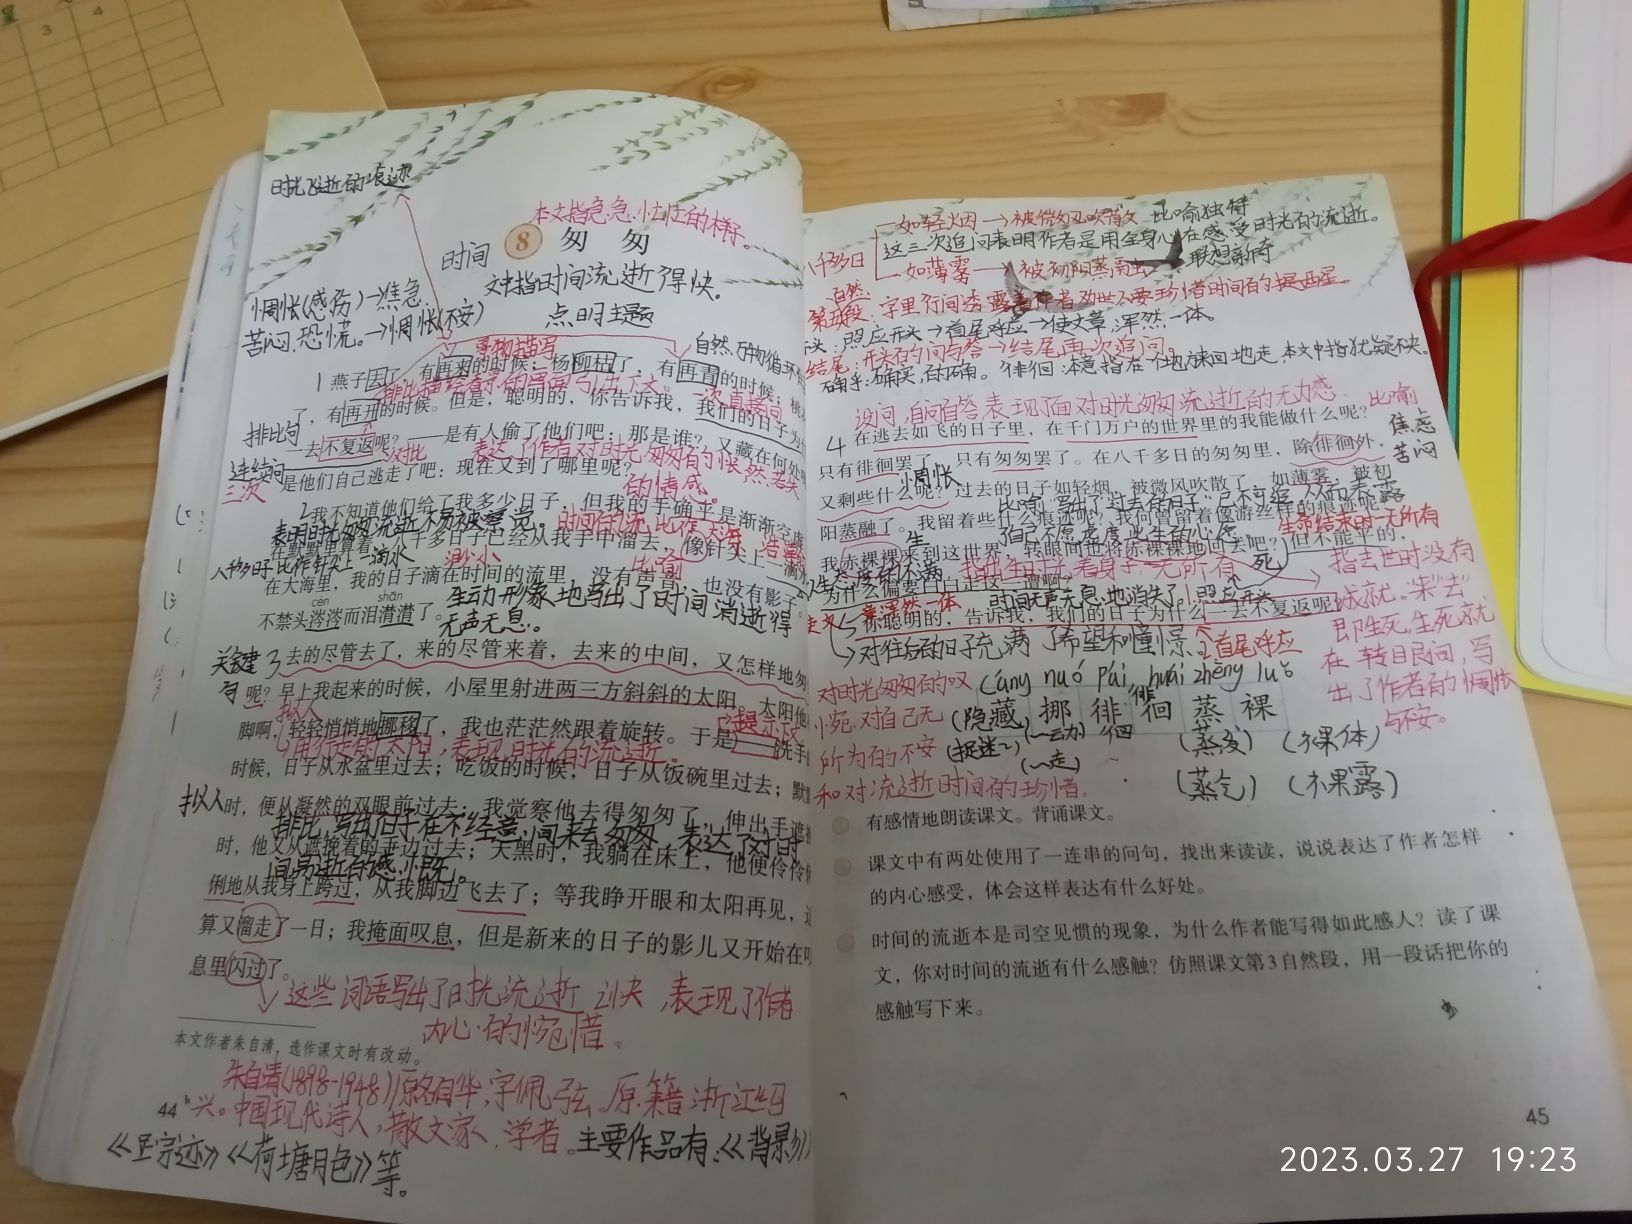 时光飞逝的痕迹
本文指急急忙忙的样子。
时间
8 匆匆
文中指时间流逝得快。
点明主题
惆怅(感伤)→焦急
苦闷、恐慌。→惆怅(不安)
景物描写
1 燕子去了,有再来的时候;杨柳枯了,有再青的时候;
了,有再开的时候。但是,聪明的,你告诉我,我们的日子为
排比句
一去不复返呢?——是有人偷了他们吧:那是谁?又藏在何处
对比
表达了作者对时光匆匆的怅然若失
的情感。
连续问
三次
是他们自己逃走了吧:现在又到了哪里呢?
2 我不知道他们给了我多少日子,但我的手确乎是渐渐空虚
表明时光匆匆流逝不易被察觉。
在默默里算着,八千多日子已经从我手中溜去,像针尖上一滴
渺小
比喻
在大海里,我的日子滴在时间的流里,没有声音,也没有影子。
cén
shān
不禁头涔涔而泪潸潸了。
生动形象地写出了时间消逝得
无声无息。
关键
句
3 去的尽管去了,来的尽管来着,去来的中间,又怎样地匆
呢?早上我起来的时候,小屋里射进两三方斜斜的太阳。太阳他
拟人
脚啊,轻轻悄悄地挪移了,我也茫茫然跟着旋转。于是——洗手
用行走的太阳,表现时光的流逝。
时候,日子从水盆里过去;吃饭的时候,日子从饭碗里过去;默
拟人
时,便从凝然的双眼前过去;我觉察他去得匆匆了,伸出手遮
排比,写出日子在不经意间来去匆匆,表达了对时
时,他又从遮挽着的手边过去;天黑时,我躺在床上,他便伶伶
间易逝的感慨。
俐地从我身上跨过,从我脚边飞去了;等我睁开眼和太阳再见,
算又溜走了一日;我掩面叹息,但是新来的日子的影儿又开始在
息里闪过了。
这些词语写出了时光流逝之快,表现了作者
内心的惋惜。
本文作者朱自清,选作课文时有改动。
朱自清(1898-1948)原名自华,字佩弦。原籍浙江绍
44
兴。中国现代诗人,散文家、学者。主要作品有:《背影》
《踪迹》《荷塘月色》等。
如轻烟→被微风吹散 比喻独特
这三次追问表明作者是用全身心在感受时光的流逝。
八千多日
如薄雾→被初阳蒸融 联想新奇
自然
开头:照应开头→首尾呼应→使文章浑然一体。
结尾:开头的问与答→结尾再次追问。
确乎:确实,的确。徘徊:本意指在一个地方来回地走,本文中指犹疑不决。
设问,自问自答,表现了面对时光匆匆流逝的无力感
比喻
4 在逃去如飞的日子里,在千门万户的世界里的我能做什么呢?
焦虑
苦闷
只有徘徊罢了,只有匆匆罢了。在八千多日的匆匆里,除徘徊外,
惆怅
又剩些什么呢?过去的日子如轻烟,被微风吹散了,如薄雾,被初
阳蒸融了。我留着些什么痕迹呢?我何曾留着像游丝样的痕迹呢?
生
生命结束时一无所有
我赤裸裸来到这世界,转眼间也将赤裸裸地回去吧?但不能平的,
死
指去世时没有
成就。"来""去"
即生死,生死就
在一转眼间,写
出了作者的惆怅
与不安。
为什么偏要白白走这一遭啊?
时间无声无息地消失了!照应开头
5 你聪明的,告诉我,我们的日子为什么一去不复返呢?
对往后的日子充满了希望和憧憬。
首尾呼应
对时光匆匆的叹
惋。对自己无
所为的不安
和对流逝时间的珍惜。
cáng nuó pái huái zhēng luǒ
(隐藏) 挪 徘 徊 蒸 裸
(捉迷~) (~动) (~走)
(蒸发) (裸体)
(蒸气) (裸露)
有感情地朗读课文。背诵课文。
课文中有两处使用了一连串的问句,找出来读读,说说表达了作者怎样
的内心感受,体会这样表达有什么好处。
时间的流逝本是司空见惯的现象,为什么作者能写得如此感人?读了课
文,你对时间的流逝有什么感触?仿照课文第3自然段,用一段话把你的
感触写下来。
45
2023.03.27 19:23